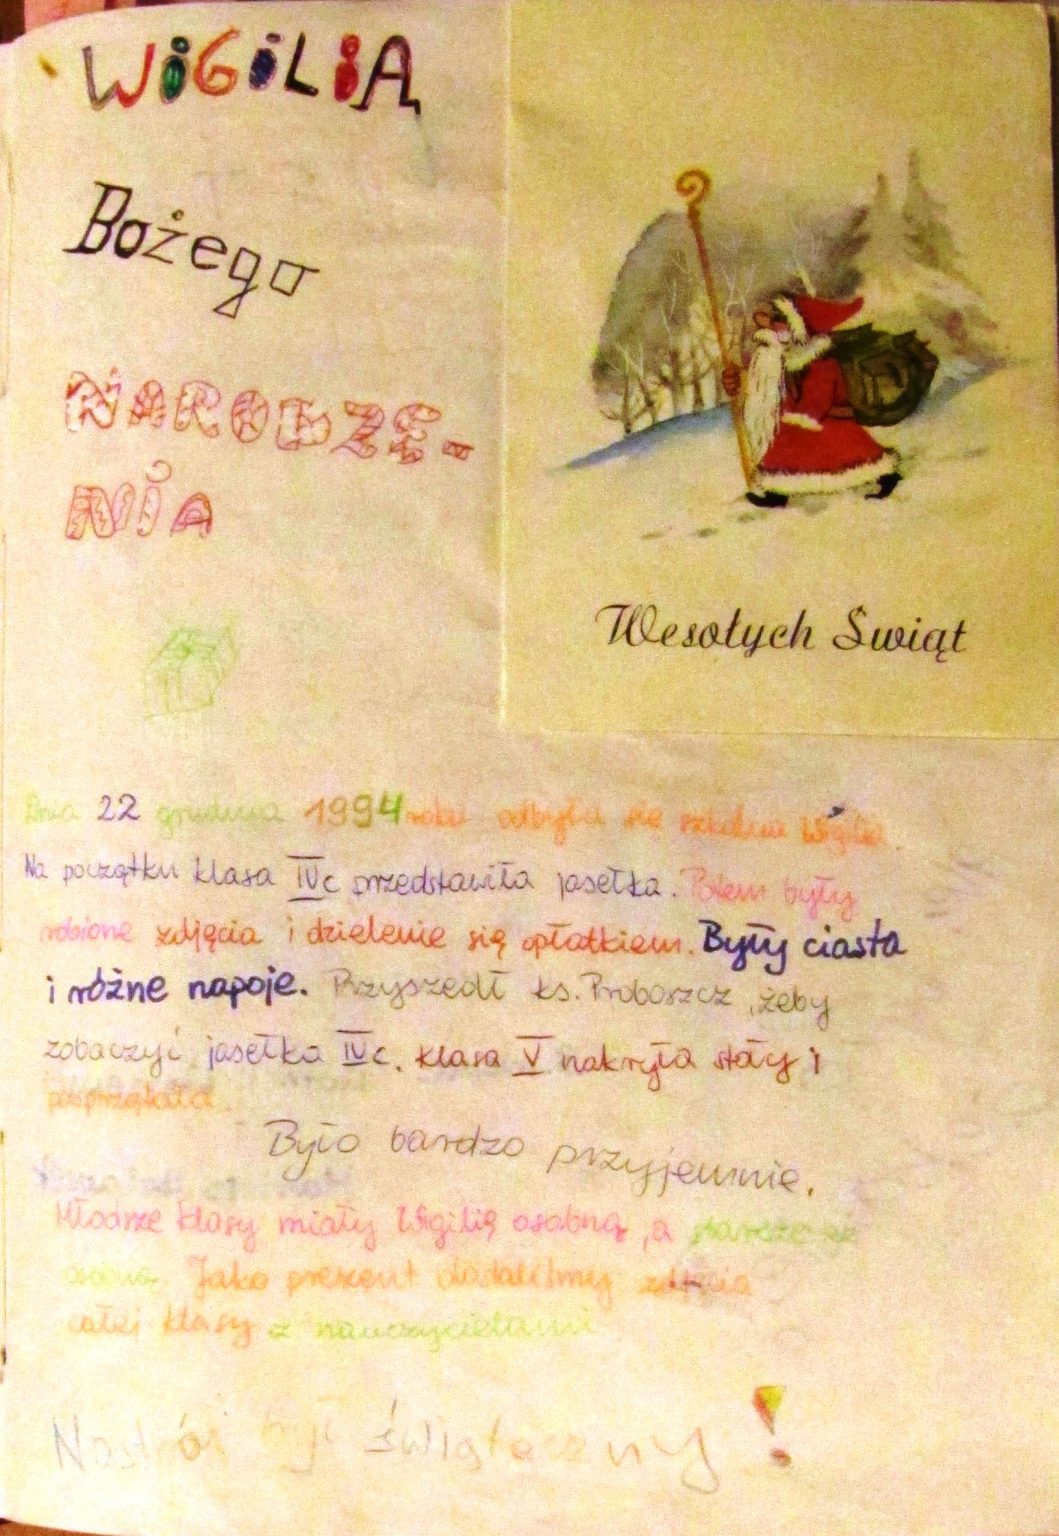 WiGiLIA
Bożego
NARODZE-
NIA
Wesołych Świąt
Dnia 22 grudnia 1994 roku odbyła się szkolna Wigilia.
Na początku klasa IVc przedstawiła jasełka. Potem były
robione zdjęcia i dzielenie się opłatkiem. Były ciasta
i różne napoje. Przyszedł ks. Proboszcz, żeby
zobaczyć jasełka IVc. klasa V nakryła stoły i
posprzątała.
Było bardzo przyjemnie.
Młodsze klasy miały Wigilię osobną, a starsze też
osobną. Jako prezent dostaliśmy zdjęcia
całej klasy z nauczycielami
Nastrój był świąteczny!